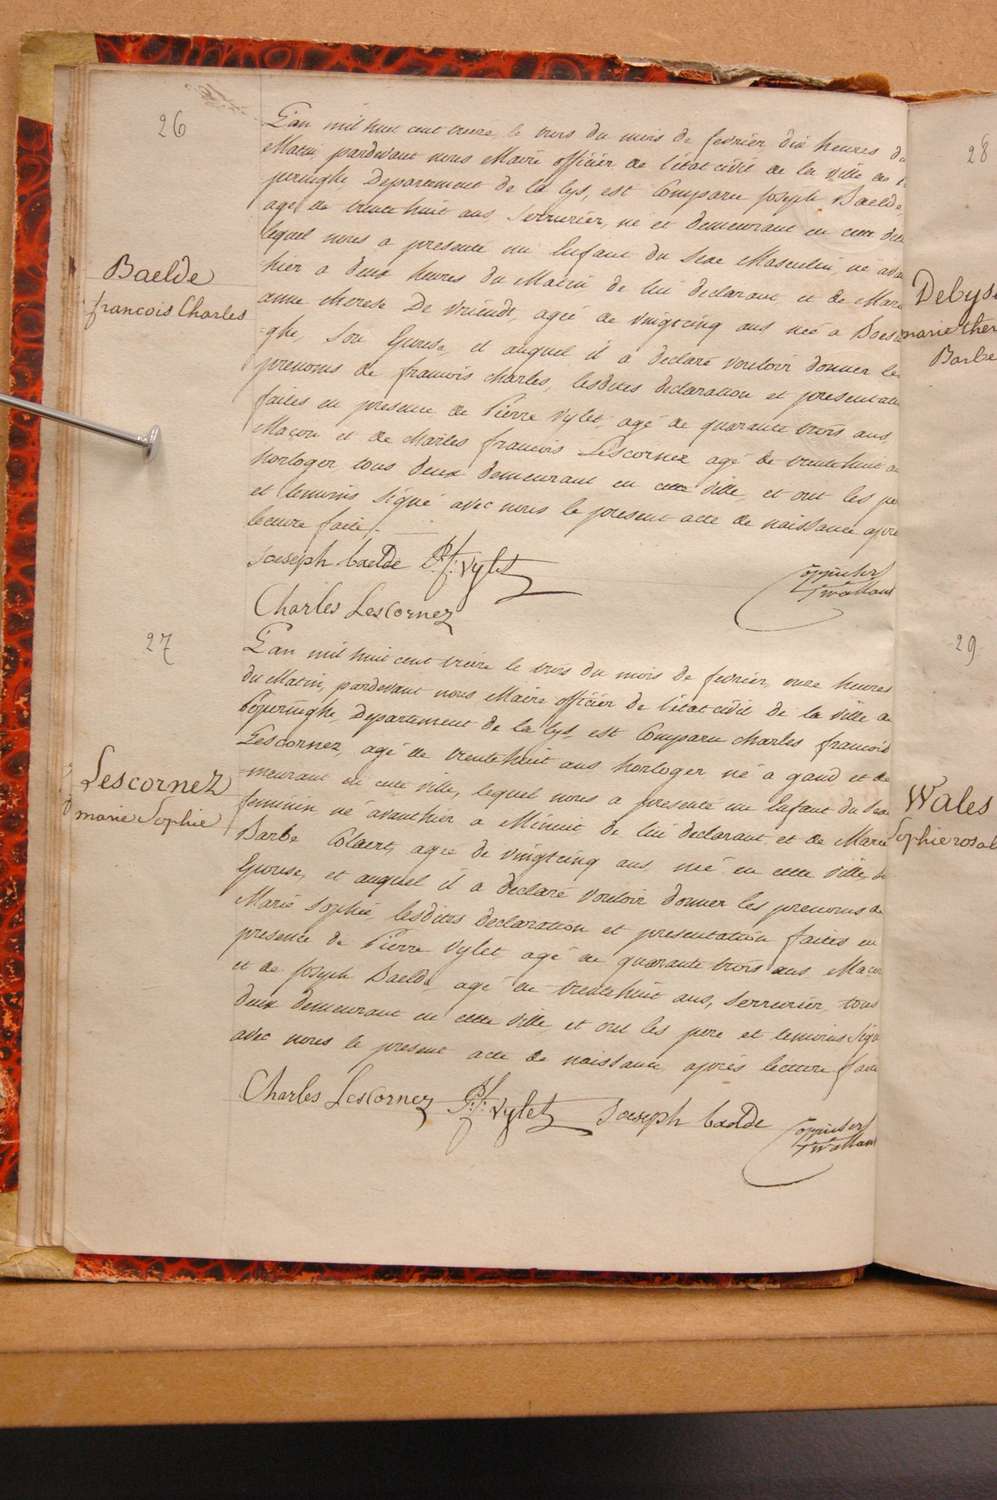 26
L'an mil huit cent treize le trois du mois de fevrier dix heures du
Matin, pardevant nous Maire officier de l'état civil de la ville de
peringhe Departement de la Lys, est Comparu Joseph Baelde,
agé de trente huit ans Serrurier, né et demeurant en cette
lequel nous a presenté un Enfant du Sexe Masculin, né
hier a deux heures du Matin de lui declarant et de Marie
anne therese De Vriendt, agée de vingtcinq ans née a Boesin
-ghe, Son Epouse, et auquel il a declaré vouloir donner les
prenoms de francois charles, lesdites declaration et presentation
faites en presence de Pierre Vylet, agé de quarante trois ans,
Maçon et de Charles francois Lescornez agé de trentehuit
horloger, tous deux demeurant en cette ville et ont les pe
et temoins signé avec nous le present acte de naissance apre
lecture faite.
Baelde
francois Charles
Joeseph baelde P:f: Vylet
Charles Lescornez
27
L'an mil huit cent treize le trois du mois de fevrier, onze heures
du Matin, pardevant nous Maire officier de l'état civil de la ville de
Poperinghe, Departement de la Lys est Comparu charles francois
Lescornez, agé de trentehuit ans horloger né a gand et de
-meurant en cette ville, lequel nous a presenté un Enfant du Sexe
feminin né avanthier a Minuit de lui declarant et de Marie
Barbe Colaert, agée de vingtcinq ans née en cette ville
Epouse, et auquel il a declaré vouloir donner les prenoms de
Marie Sophie, lesdites declaration et presentation faites en
presence de Pierre Vylet agé de quarante trois ans Maçon
et de Joseph Baelde agé de trentehuit ans, Serrurier tous
deux demeurant en cette ville et ont les pere et temoins Signé
avec nous le present acte de naissance après lecture faite
Lescornez
marie Sophie
Charles Lescornez P:f: Vylet Joeseph baelde
28
Debyse
marie ther
Barbe
29
Wales
Sophie rosal